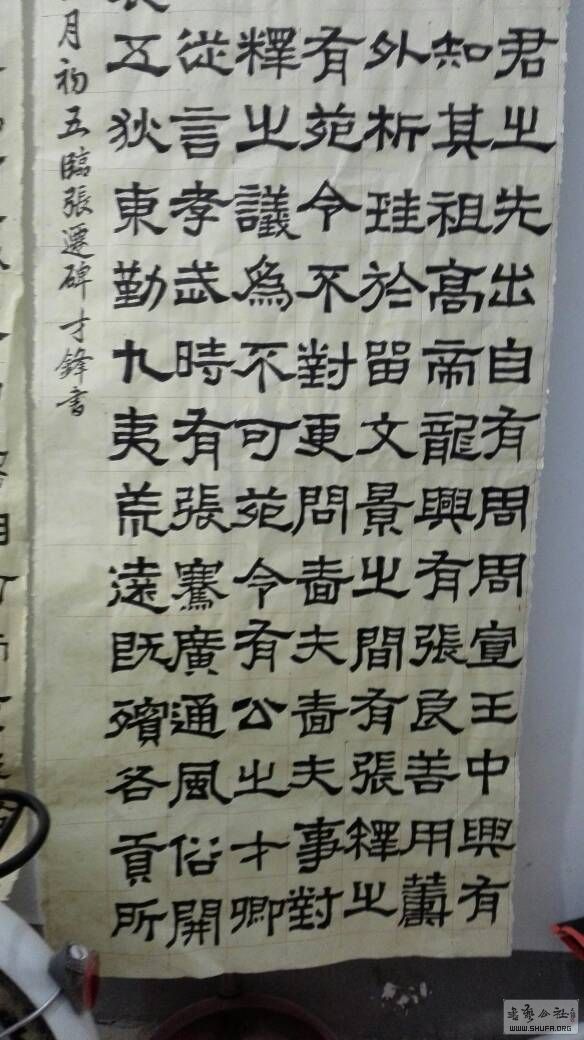 君之先出自有周周宣王中興有
知其祖高帝龍興有張良善用籌
外析珪於留文景之間有張釋之
有苑令不對更問嗇夫嗇夫事對
釋之議為不可苑令有公之才卿
從言孝武時有張騫廣通風俗開
五狄東勤九夷荒遠既殯各貢所
月初五臨張遷碑才鋒書
書藝公社
WWW.SHUFA.ORG